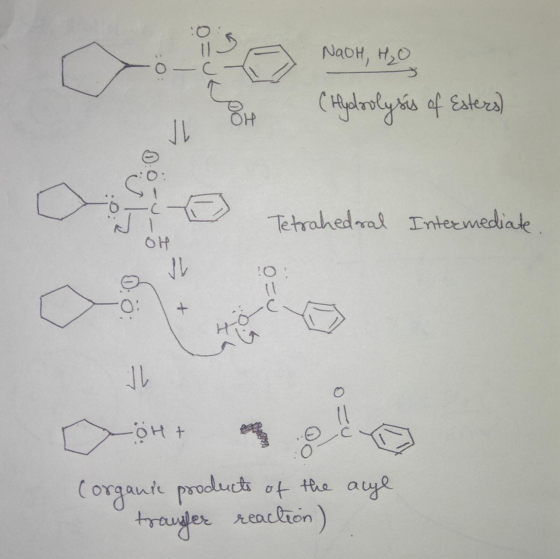 :O:
O — C
NaOH, H2O
⊖OH
(Hydrolysis of Esters)
⊖
:O:
O — C
OH
Tetrahedral Intermediate.
⊖
O: + H-O C :O:
OH + ⊖ O C O
(organic products of the acyl
transfer reaction)